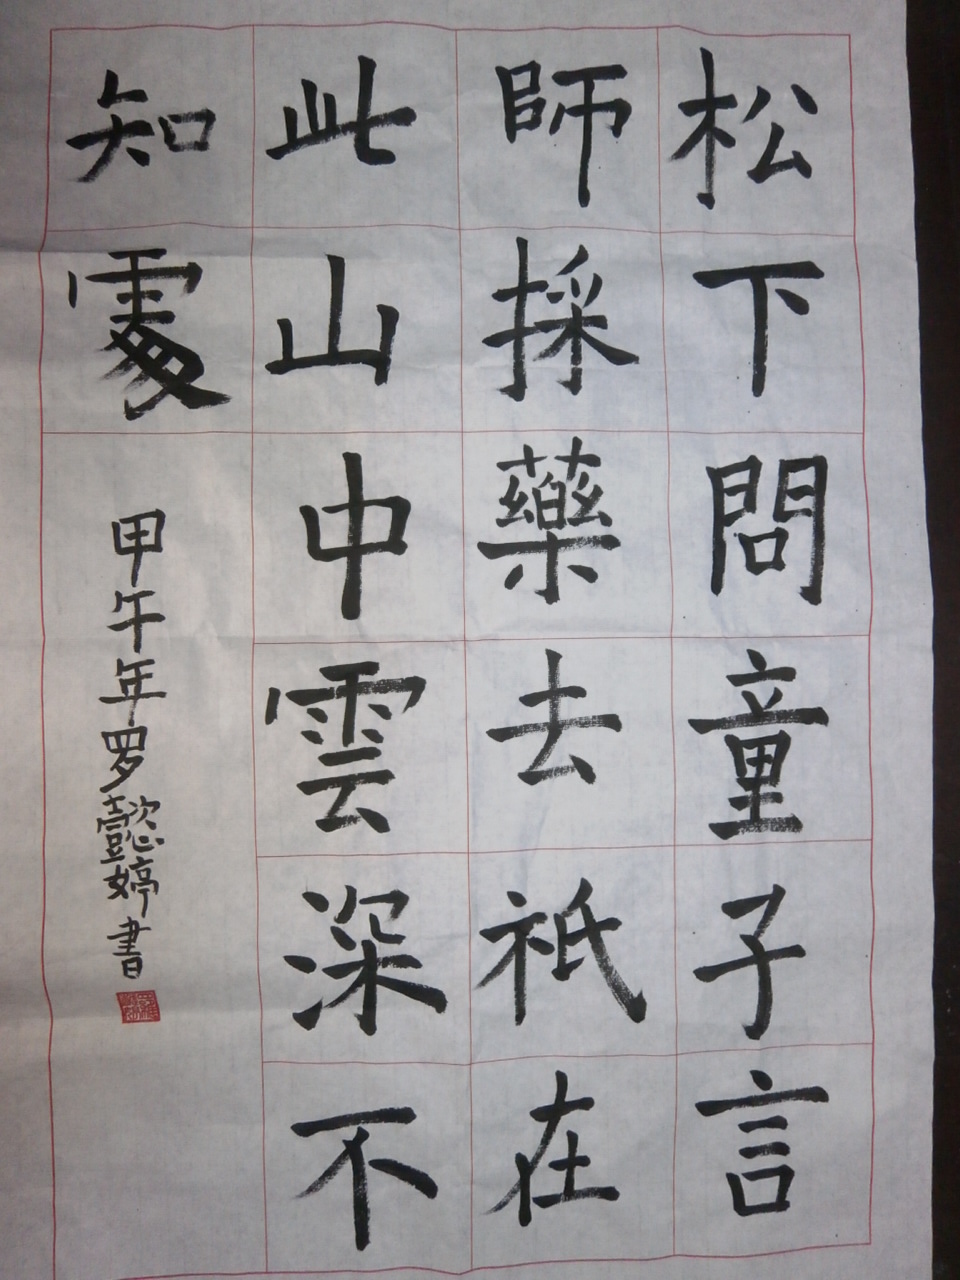 松下問童子言
師採藥去祇在
此山中雲深不
知處
甲午年罗懿婷書